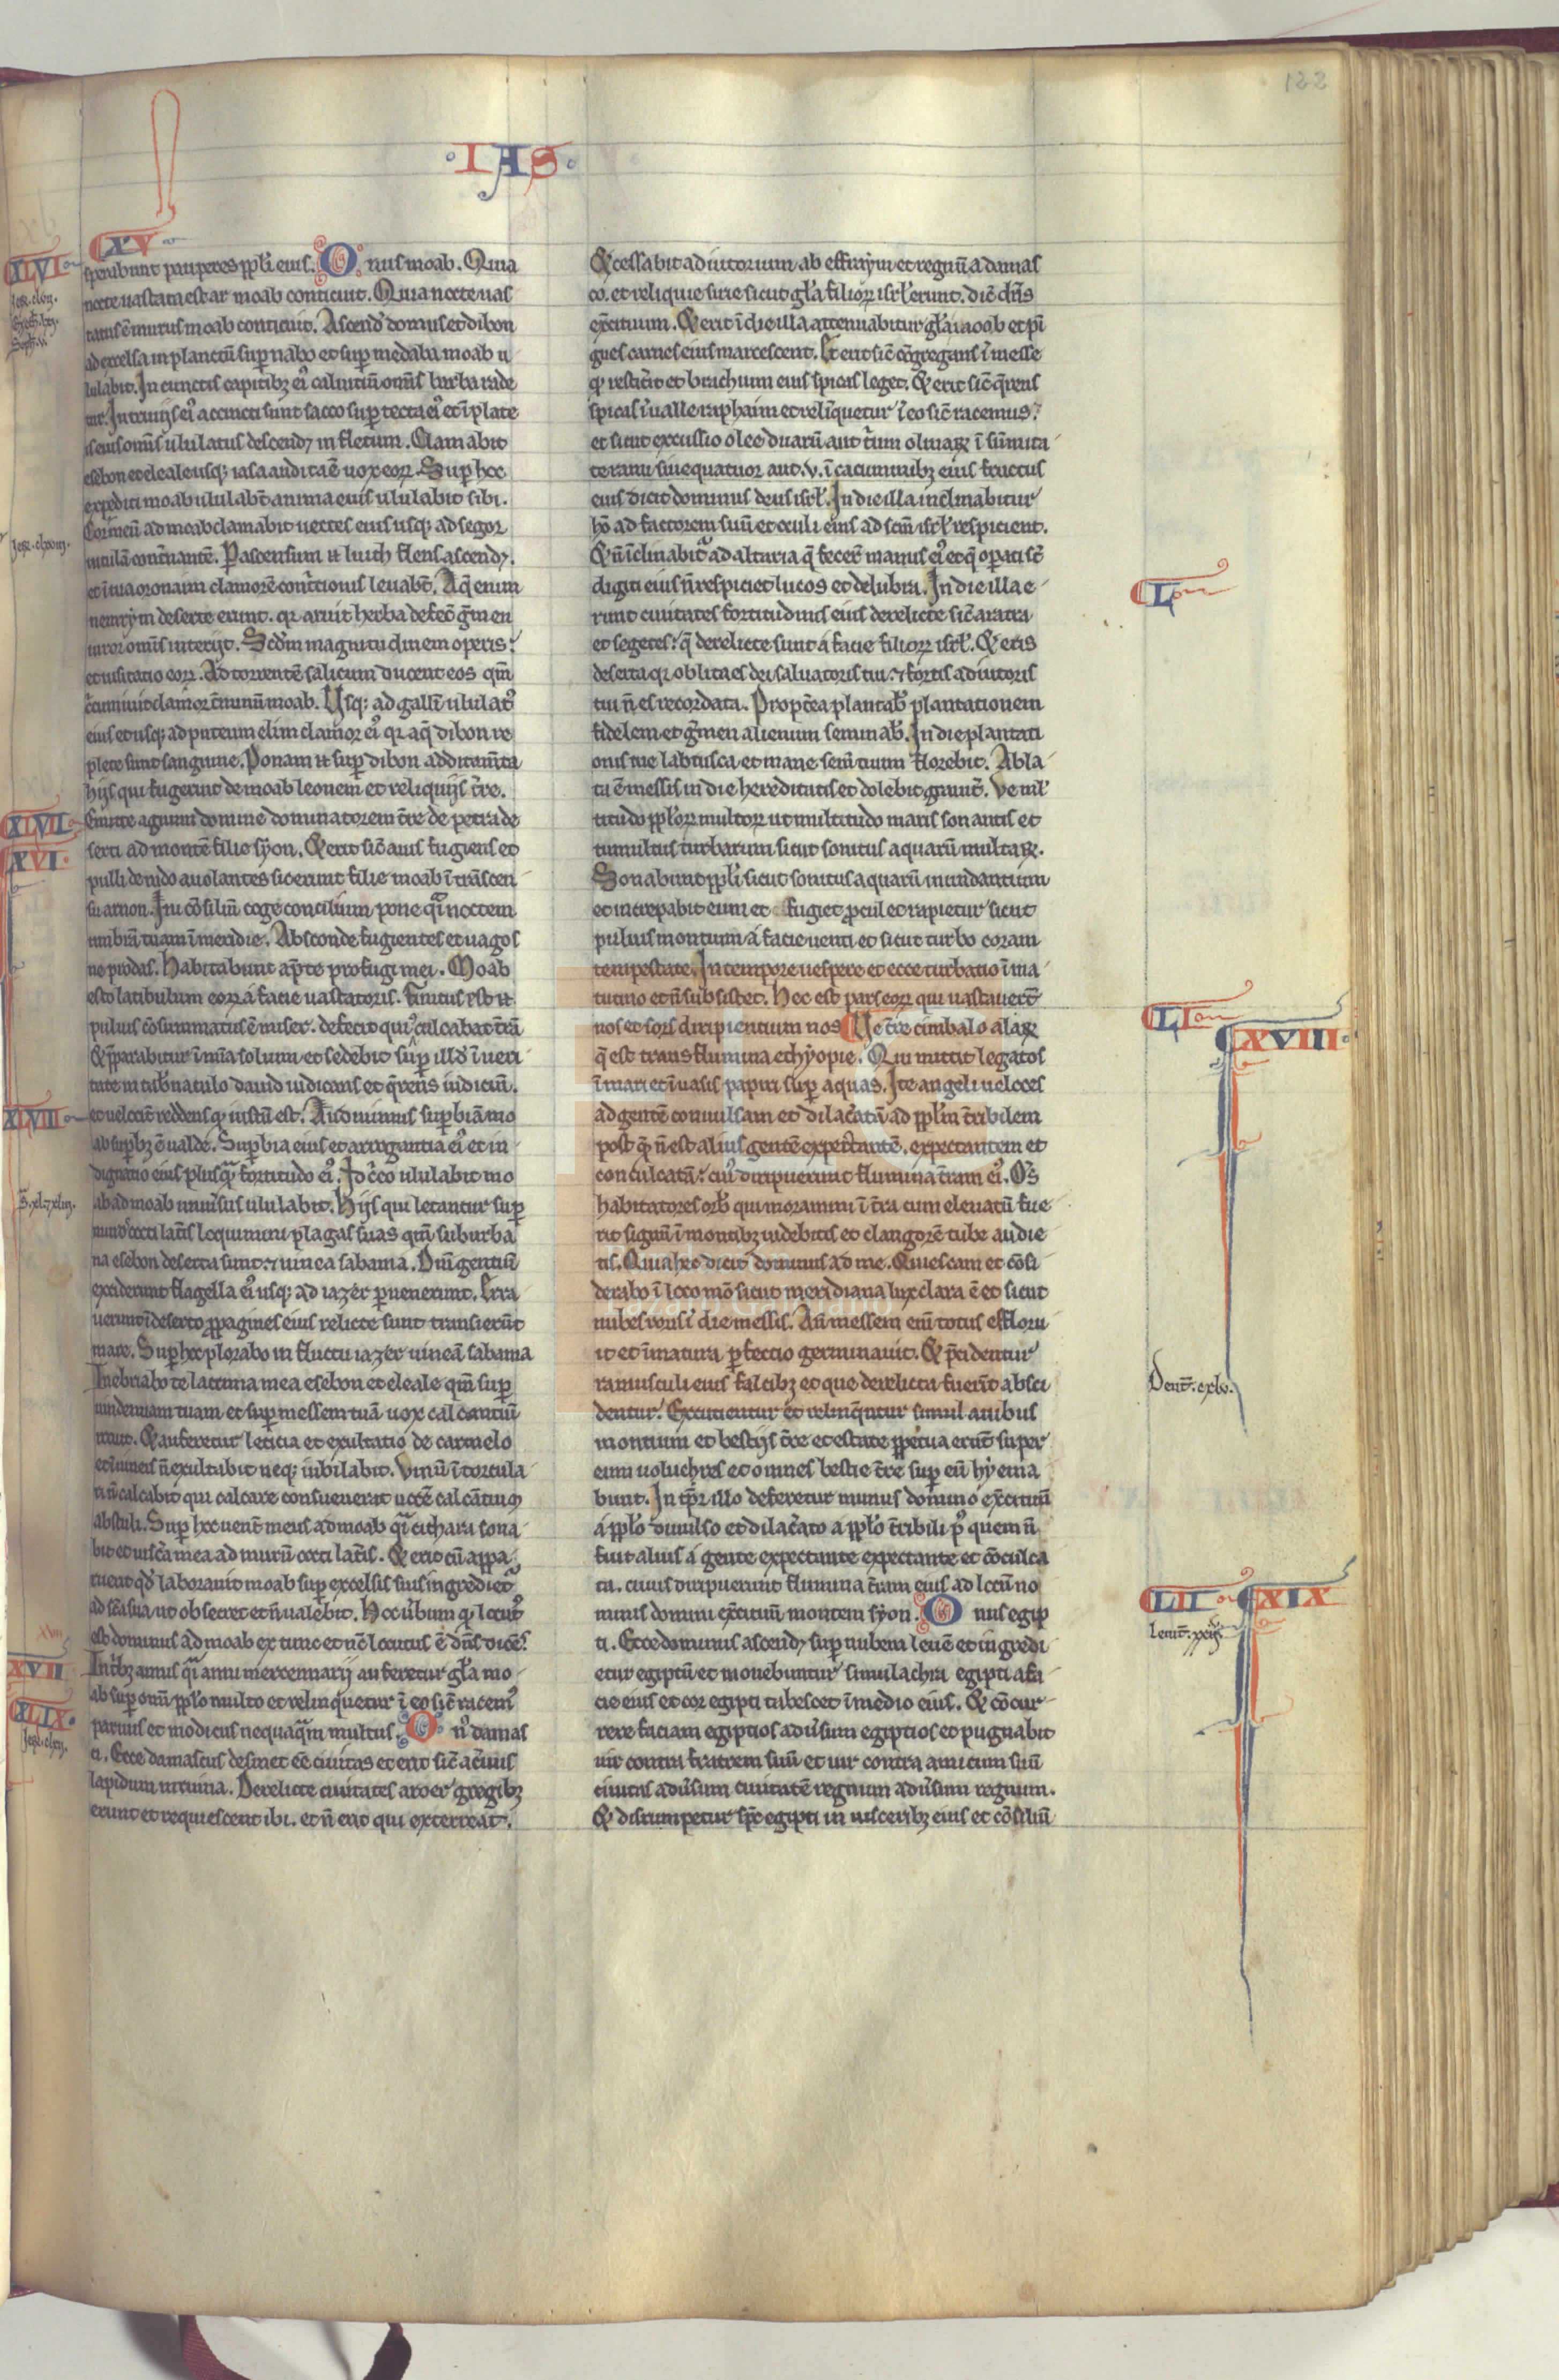 122
·IAS·
XV
XLVI
sperabunt pauperes ppl̃i eius. Onus moab. Quia
nocte uastata est ar moab conticuit. Quia nocte uas
tatus ẽ murus moab conticuit. Ascend̃ domus et dibon
ad excelsa in planctũ sup nabo et sup medaba moab u
lulabit. In cunctis capitibȝ ei᾽ caluitiũ om̃s barba rade
tur. In triuijs ei᾽ accincti sunt sacco sup tecta ei᾽ et ĩ plate
is eius om̃s ululatus descendȝ in fletum. Clamabit
esebon et eleale usqȝ iasa audita ẽ uox eorꝝ. Sup hoc
expediti moab ululabt̃ anima eius ululabit sibi.
Cor meũ ad moab clamabit uectes eius usqȝ ad segor
uitulã cont̃nantẽ. Per ascensum .n. luith flens ascendȝ.
et ĩ uia oronaim clamorẽ cont̃tionis leuabt̃. Aq̃ enim
nemrym deserte erunt. qꝛ aruit herba defec̃ g̃men
uiror om̃s interijt. Scđm magnitudinem operis
et uisitatio eorꝝ. Ad torrentẽ salicum ducent eos qm̃
c̃cumiuit clamor t̃minũ moab. Usqȝ ad gallĩ ululat᾽
eius et usqȝ ad puteum elim clamor ei᾽ qꝛ aq̃ dibon re
plete sunt sanguine. Ponam .n. sup dibon additam̃ta
hijs qui fugerint de moab leonem et reliquijs t̃re.
XLVII
Emitte agnum domine dominatorem t̃re de petra de
XVI·
serti ad montẽ filie syon. Et erit sic̃ auis fugiens et
pulli de nido auolantes sic erunt filie moab ĩ trãscen
su arnon. Ini cõsiliũ coge concilium pone q̃i noctem
umbrã tuam ĩ meridie. Absconde fugientes et uagos
ne prodas. Habitabunt ap̃ te profugi mei. Moab
esto latibulum eorꝝ a facie uastatoris. Finitus est .n.
puluis cõsummatus ẽ miser. defecit qui c᾽culcabat t̃rã
Et p̃parabitur ĩ mĩa solium et sedebit sup illđ ĩ ueri
tate in tab̃naculo dauid iudicans et q̃rens iudiciũ.
XLVIII
et uelocit̃ reddens qđ iustũ est. Audiuimus sup̃biã mo
ab sup̃bȝ ẽ ualde. Sup̃bia eius et arrogantia ei᾽ et in
dignatio eius plusq̃ fortitudo ei᾽. Idc̃co ululabit mo
ab ad moab uniũsus ululabit. Hijs qui letantur sup
muros cocti lat̃is loquimini plagas suas qm̃ suburba
na esebon deserta sunt ⁊ uinea sabama. Dñi gentiũ
exciderunt flagella ei᾽ usqȝ ad iazer peruenerunt. Erra
uerunt ĩ deserto ppagines eius relicte sunt transierũt
mare. Sup hoc plorabo in fluctu iazer uineã sabama
Inebriabo te lacrima mea esebon et eleale qm̃ sup
uindemiam tuam et sup messem tuã uox calcantiũ
irruit. Et auferetur leticia et exultatio de carmelo
et ĩ uineis ñ exultabit neqȝ iubilabit. Vinũ ĩ torcula
ri ñ calcabit qui calcare consueuerat uocẽ calcãtium
abstuli. Sup hoc uent̃ meus ad moab q̃i cithara sona
bit et uisc̃a mea ad murũ cocti lat̃is. Et erit cũ appa
ruerit qđ laborauit moab sup excelsis suis ingrediet᾽
ad sc̃a sua ut obsecret et ñ ualebit. Hoc ũbum qđ locut᾽
est dominus ad moab ex tunc et nc̃ locutus ẽ dñs dicẽs.
XVII
In t̃bȝ annis q̃i anni mercennarij auferetur gl̃a mo
ab sup om̃i ppl̃o multo et relinquetur ĩ eo sic̃ racem᾽
XLIX·
paruus et modicus nequaq̃m multus. On᾽ damas
ci. Ecce damascus desinet eẽ ciuitas et erit sic̃ aceruus
lapidum in ruina. Derelicte ciuitates aroer gregibȝ
erunt et requiescent ibi. et ñ erit qui exterreat.
Et cessabit adiutorium ab effraym et regnũ a damas
co. et reliquie sirie sicut gl̃a filiorꝝ isrl̃ erunt. dic̃ dñs
exc̃ituum. Et erit ĩ die illa attenuabitur gl̃a iacob et pĩ
gues carnes eius marcescent. Et erit sic̃ cõgregans ĩ messe
qđ restit̃it et brachium eius spicas leget. Et erit sic̃ q̃rens
spicas ĩ ualle raphaim et relĩquetur ĩ eo sic̃ racemus
et sicut excussio olee duarũ aut t̃um oliuaꝝ ĩ sũmita
te rami siue quatuor aut .v. ĩ cacuminibȝ eius fructus
eius dicit dominus deus isrl̃. In die illa inclinabitur
hõ ad factorem suũ et oculi eius ad sc̃m isrl̃ respicient.
Et ñ ĩclinabit᾽ ad altaria q̃ fecer̃ manus ei᾽ et q̃ operati st̃
digiti eius ñ respiciet lucos et delubra. In die illa e
L
runt ciuitates fortitudinis eius derelicte sic̃ aratra
et segetes q̃ derelicte sunt a facie filiorꝝ isrl̃. Et eris
deserta qꝛ oblita es dei saluatoris tui ⁊ fortis adiutoris
tui ñ es recordata. Propt̃ea plantab᾽ plantationem
fidelem et g̃men alienum seminab᾽. In die plantati
onis tue labrusca et mane sem̃ tuum florebit. Abla
ta ẽ messis in die hereditatis et dolebit grauit̃. Ve ml̃
titudo ppl̃orꝝ multorꝝ ut multitudo maris sonantis et
tumultus turbarum sicut sonitus aquarũ multaꝝ.
Sonabunt ppl̃i sicut sonitus aquarũ inundantium
et increpabit eum et fugiet procul et rapietur sicut
puluis montium a facie uenti et sicut turbo coram
tempestate. In tempore uespere et ecce turbatio ĩ ma
tutino et ñ subsistet. Hec est pars eorꝝ qui uastauer̃t
LI
nos et sors diripientium nos Ve t̃re cimbalo alaꝝ
XVIII·
q̃ est trans flumina ethyopie. Qui mittit legatos
ĩ mari et ĩ uasis papiri sup aquas. Ite angeli ueloces
ad gentẽ conuulsam et dilac̃atã ad ppl̃m t̃ribilem
post q̃ ñ est alius gentẽ expectantẽ. expectantem et
conculcatã cui᾽ diripuerunt flumina t̃ram ei᾽. Om̃s
habitatores orb᾽ qui moramini ĩ t̃ra cum eleuatũ fue
rit signũ ĩ montibȝ uidebitis et clangorẽ tube audie
tis. Quia hec dicit dominus ad me. Quiescam et cõsi
derabo ĩ loco mõ sicut meridiana lux clara ẽ et sicut
nubes roris ĩ die messis. Añ messem eñi totus effloru
it et ĩmatura perfectio germinauit. Et p̃cidentur
ramusculi eius falcibȝ et que derelicta fuer̃t absci
Deut̃. cxlv.
dentur. Excutientur et relinq̃ntur simul auibus
montium et bestijs t̃re et estate ppetua erũt super
eum uoluchres et omnes bestie t̃re sup eũ hyema
bunt. In tp̃r illo deferetur munus domino exc̃ituũ
a ppl̃o diuulso et dilac̃ato a ppl̃o t̃ribili p᾽ quem ñ
fuit alius a gente expectante expectante et cõculca
ta. cuius diripuerunt flumina t̃ram eius ad locũ no
LII
XIX
minis domini exc̃ituũ montem syon. Onus egip
ti. Ecce dominus ascendȝ sup nubem leuẽ et ingredi
etur egiptũ et mouebuntur simulachra egipti a fa
cie eius et cor egipti tabescet ĩ medio eius. Et cõcur
rere faciam egiptios adũsum egiptios et pugnabit
uir contra fratrem suũ et uir contra amicum suũ
ciuitas adũsum ciuitatẽ regnum adũsum regnum.
Et disrumpetur sp̃c egipti in uisceribȝ eius et cõsiliũ